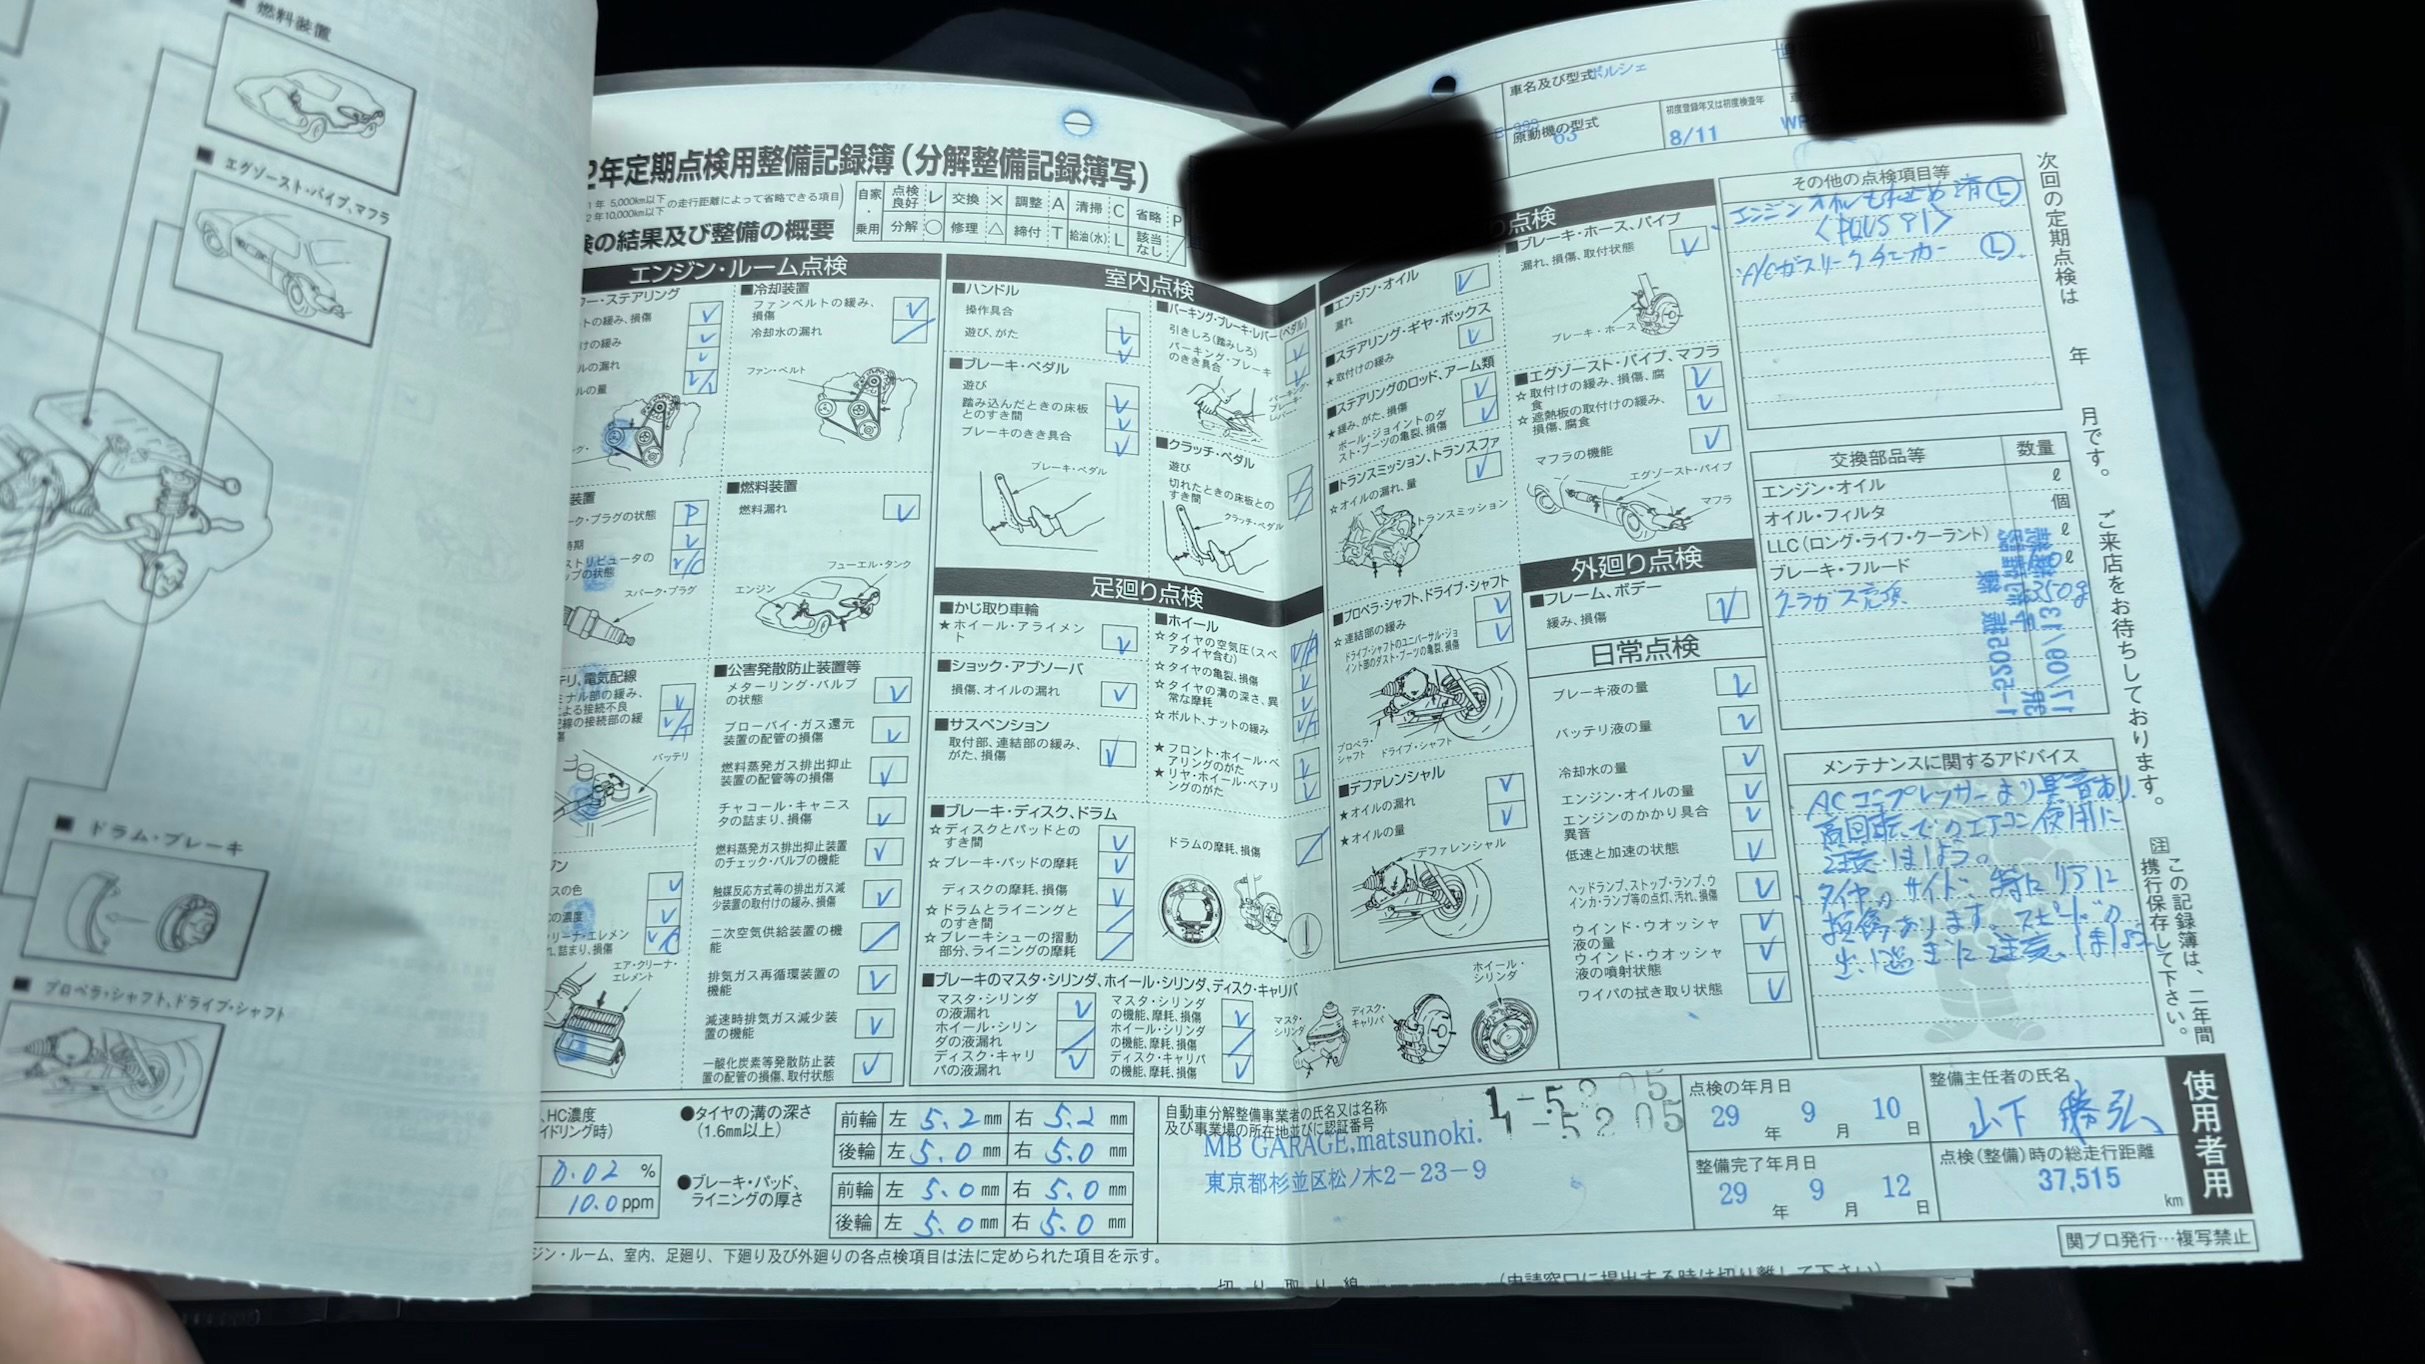 燃料装置
エグゾースト・パイプ、マフラ
ドラム・ブレーキ
プロペラ・シャフト、ドライブ・シャフト
2年定期点検用整備記録簿(分解整備記録簿写)
1年 5,000km以下
2年10,000km以下
の走行距離によって省略できる項目)
検の結果及び整備の概要
自家・乗用
点検良好 レ 交換 × 調整 A 清掃 C 省略 P
分解 ○ 修理 △ 締付 T 給油(水) L 該当なし /
車名及び型式 ポルシェ
原動機の型式 63
初度登録年又は初度検査年
8/11
エンジン・ルーム点検
ワー・ステアリング
トの緩み、損傷
けの緩み
ルの漏れ
ルの量
■冷却装置
ファンベルトの緩み、損傷
冷却水の漏れ
ファン・ベルト
装置
ーク・プラグの状態 P
時期
ストリビュータの
ップの状態
スパーク・プラグ
■燃料装置
燃料漏れ
フューエル・タンク
エンジン
テリ、電気配線
ミナル部の緩み、
よる接続不良
線の接続部の緩
傷
バッテリ
■公害発散防止装置等
メターリング・バルブの状態
ブローバイ・ガス還元装置の配管の損傷
燃料蒸発ガス排出抑止装置の配管等の損傷
チャコール・キャニスタの詰まり、損傷
燃料蒸発ガス排出抑止装置のチェック・バルブの機能
触媒反応方式等の排出ガス減少装置の取付けの緩み、損傷
二次空気供給装置の機能
排気ガス再循環装置の機能
減速時排気ガス減少装置の機能
一酸化炭素等発散防止装置の配管の損傷、取付状態
ジン
スの色
の濃度
リーナ・エレメン
れ、詰まり、損傷
エア・クリーナ・エレメント
室内点検
■ハンドル
操作具合
遊び、がた
■ブレーキ・ペダル
遊び
踏み込んだときの床板とのすき間
ブレーキのきき具合
ブレーキ・ペダル
■パーキング・ブレーキ・レバー(ペダル)
引きしろ(踏みしろ)
パーキング・ブレーキのきき具合
パーキング・ブレーキ・レバー
■クラッチ・ペダル
遊び
切れたときの床板とのすき間
クラッチ・ペダル
足廻り点検
■かじ取り車輪
★ホイール・アライメント
■ショック・アブソーバ
損傷、オイルの漏れ
■サスペンション
取付部、連結部の緩み、がた、損傷
■ホイール
☆タイヤの空気圧(スペアタイヤ含む)
☆タイヤの亀裂、損傷
☆タイヤの溝の深さ、異常な摩耗
☆ボルト、ナットの緩み
★フロント・ホイール・ベアリングのがた
★リヤ・ホイール・ベアリングのがた
■ブレーキ・ディスク、ドラム
☆ディスクとパッドとのすき間
☆ブレーキ・パッドの摩耗
ディスクの摩耗、損傷
☆ドラムとライニングとのすき間
☆ブレーキシューの摺動部分、ライニングの摩耗
ドラムの摩耗、損傷
■ブレーキのマスタ・シリンダ、ホイール・シリンダ、ディスク・キャリパ
マスタ・シリンダの液漏れ
ホイール・シリンダの液漏れ
ディスク・キャリパの液漏れ
マスタ・シリンダの機能、摩耗、損傷
ホイール・シリンダの機能、摩耗、損傷
ディスク・キャリパの機能、摩耗、損傷
マスタ・シリンダ
ディスク・キャリパ
ホイール・シリンダ
り点検
■エンジン・オイル
漏れ
■ステアリング・ギヤ・ボックス
★取付けの緩み
■ステアリングのロッド、アーム類
★緩み、がた、損傷
ボール・ジョイントのダスト・ブーツの亀裂、損傷
■トランスミッション、トランスファ
☆オイルの漏れ、量
トランスミッション
■プロペラ・シャフト、ドライブ・シャフト
☆連結部の緩み
ドライブ・シャフトのユニバーサル・ジョイント部のダスト・ブーツの亀裂、損傷
プロペラ・シャフト
ドライブ・シャフト
■デファレンシャル
★オイルの漏れ
★オイルの量
デファレンシャル
■ブレーキ・ホース、パイプ
漏れ、損傷、取付状態
ブレーキ・ホース
■エグゾースト・パイプ、マフラ
☆取付けの緩み、損傷、腐食
☆遮熱板の取付けの緩み、損傷、腐食
マフラの機能
エグゾースト・パイプ
マフラ
外廻り点検
■フレーム、ボデー
緩み、損傷
日常点検
ブレーキ液の量
バッテリ液の量
冷却水の量
エンジン・オイルの量
エンジンのかかり具合異音
低速と加速の状態
ヘッドランプ、ストップ・ランプ、ウインカ・ランプ等の点灯、汚れ、損傷
ウインド・ウオッシャ液の量
ウインド・ウオッシャ液の噴射状態
ワイパの拭き取り状態
その他の点検項目等
エンジンオイルもれ止め済 Ⓛ
A/Cガスリークチェッカー Ⓛ
交換部品等 数量
エンジン・オイル ℓ
オイル・フィルタ 個
LLC(ロング・ライフ・クーラント) ℓ
ブレーキ・フルード ℓ
クーラガス充填 350g
メンテナンスに関するアドバイス
ACコンプレッサーより異音あり.
高回転でのエアコン使用に
注意しましょう。
タイヤのサイド、特にリアに
損傷あります。スピードの
出し過ぎに注意しましょう
次回の定期点検は 年 月です。ご来店をお待ちしております。
注 この記録簿は、二年間携行保存して下さい。
、HC濃度
イドリング時)
0.02 %
10.0 ppm
●タイヤの溝の深さ
(1.6mm以上)
前輪 左 5.2 mm 右 5.2 mm
後輪 左 5.0 mm 右 5.0 mm
●ブレーキ・パッド、ライニングの厚さ
前輪 左 5.0 mm 右 5.0 mm
後輪 左 5.0 mm 右 5.0 mm
自動車分解整備事業者の氏名又は名称
及び事業場の所在地並びに認証番号
MB GARAGE.matsunoki.
東京都杉並区松ノ木2-23-9
1-5205
点検の年月日
29年 9月 10日
整備完了年月日
29年 9月 12日
整備主任者の氏名
山下 勝弘
点検(整備)時の総走行距離
37,515 km
使用者用
ジン・ルーム、室内、足廻り、下廻り及び外廻りの各点検項目は法に定められた項目を示す。
関プロ発行…複写禁止
切り取り線
(申請窓口に提出する時は切り離して下さい)